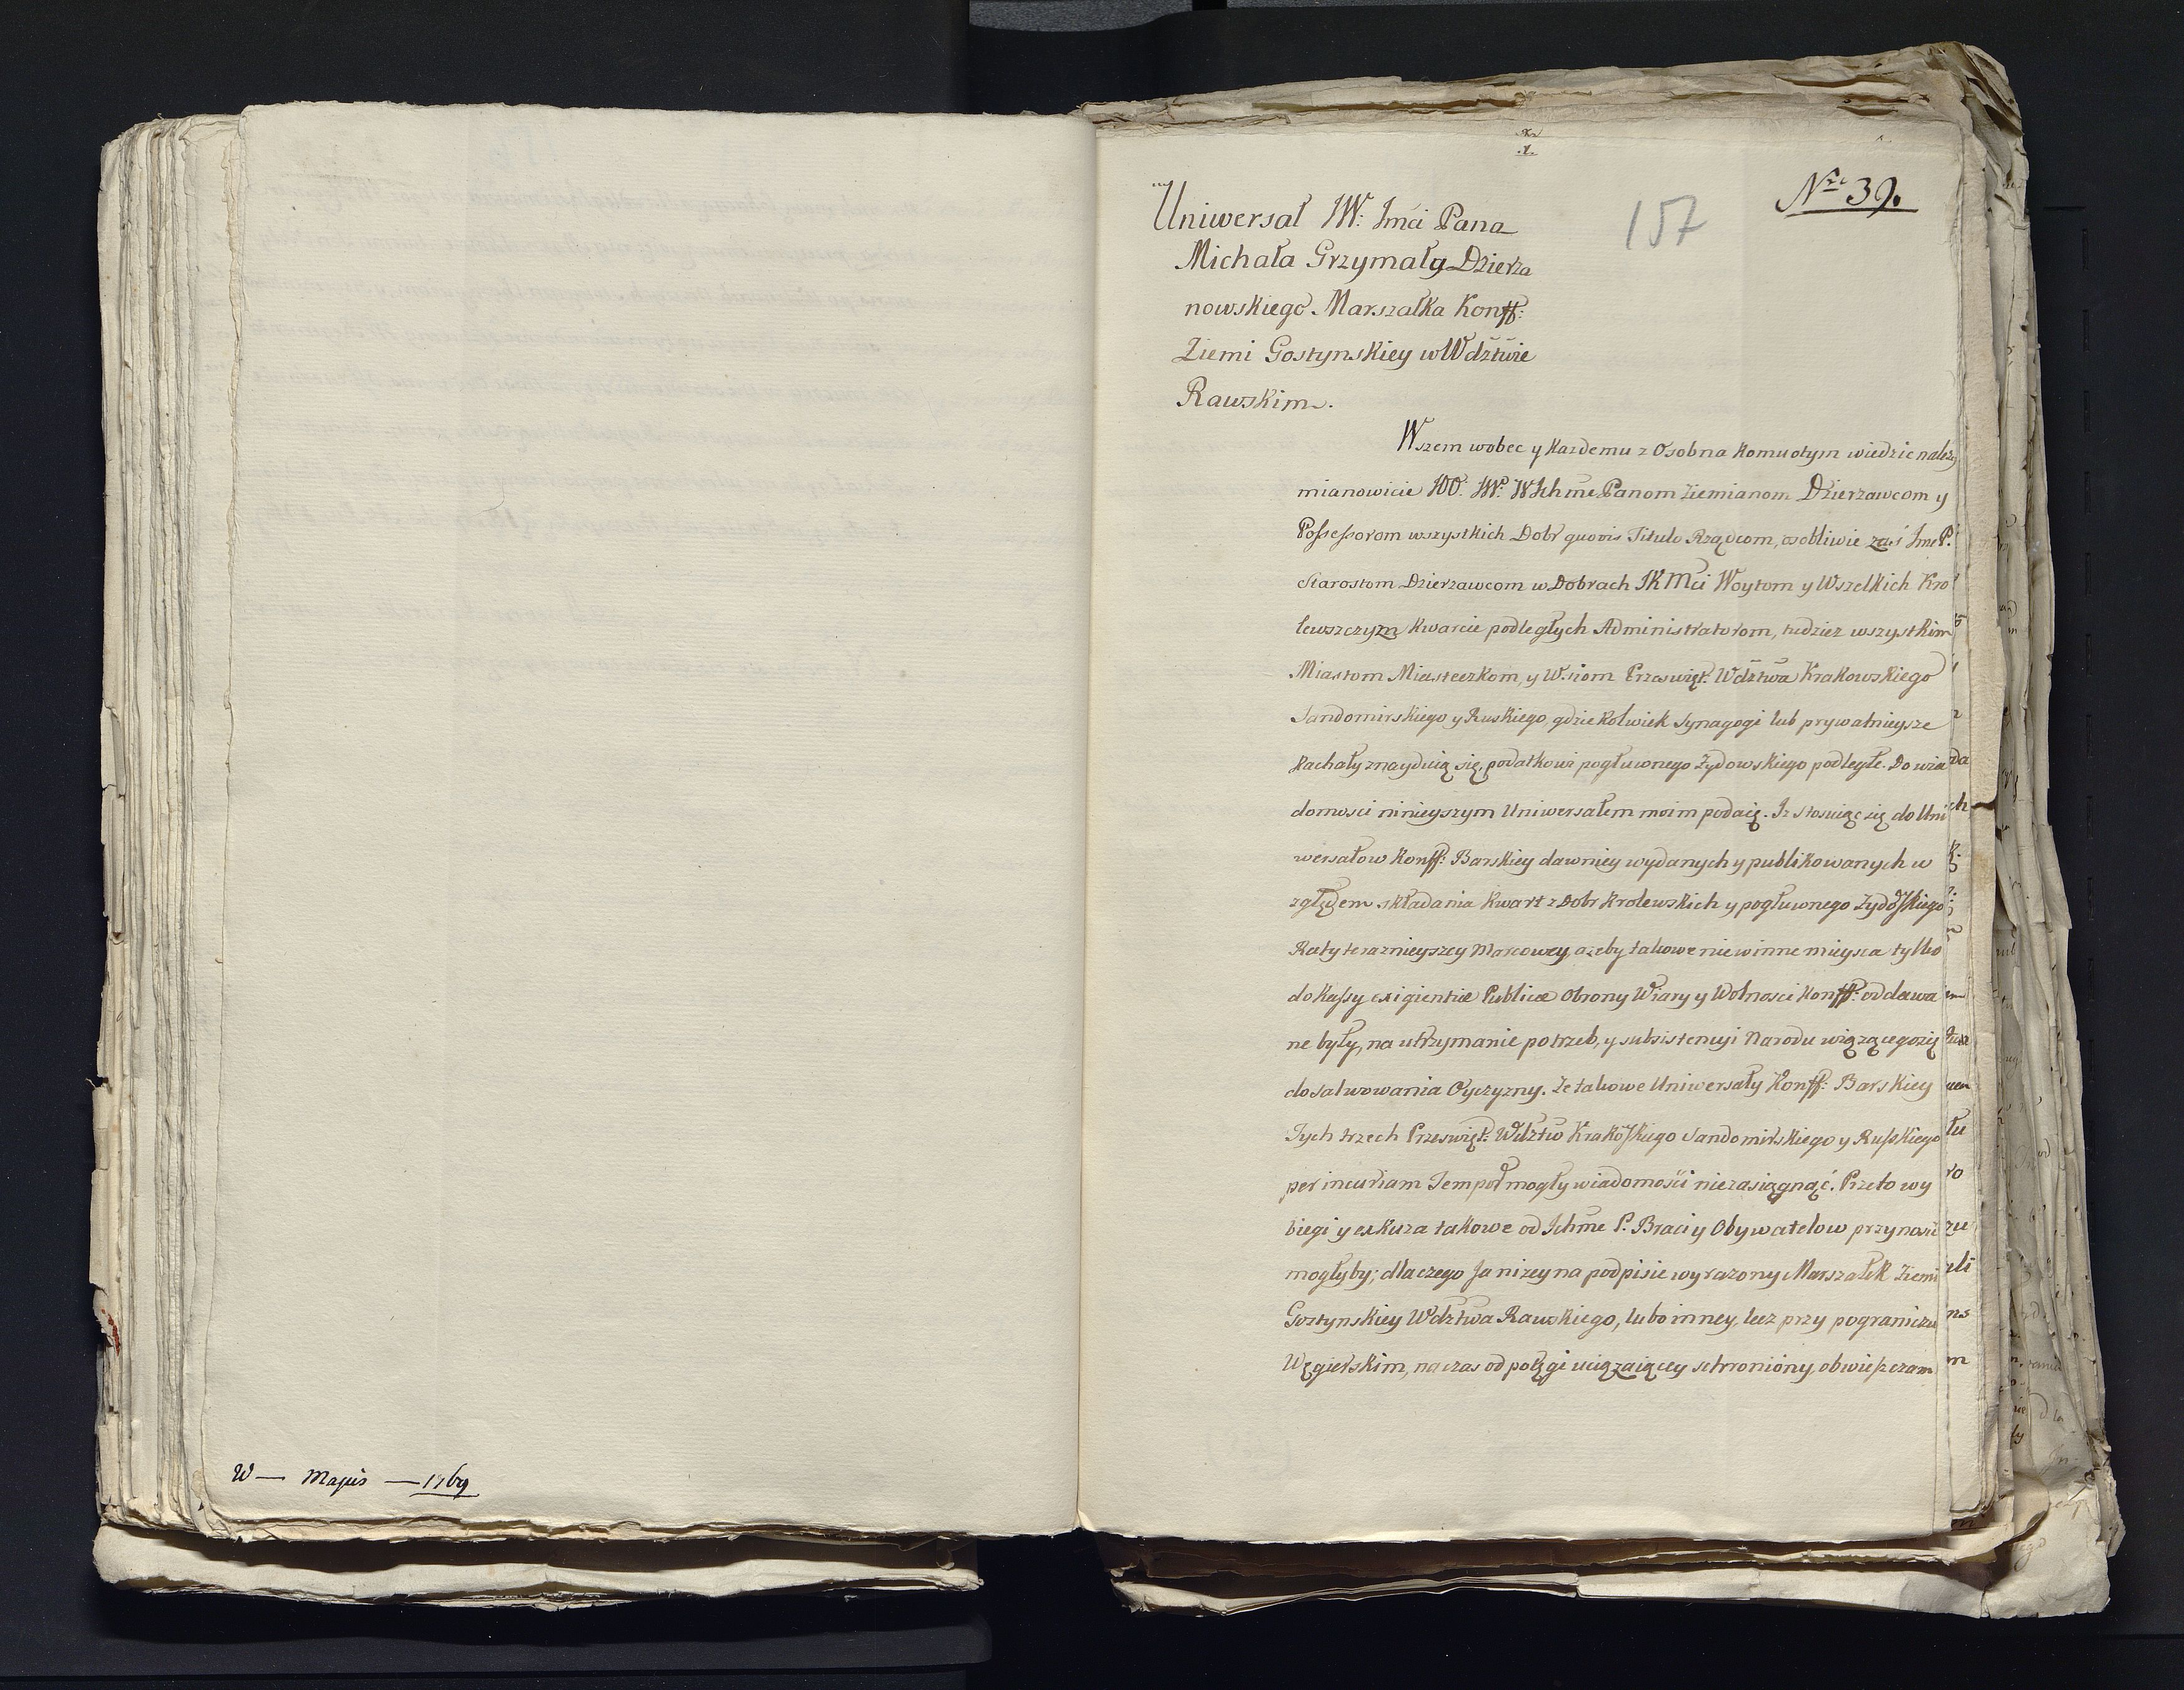 W — Majus — 1769
Nro 39.
157
Uniwersał JW: Jmci Pana
Michała Grzymały Dzierza
nowskiego Marszałka Konff:
Ziemi Gostynskiey w Wdztwie
Rawskim.
Wszem wobec y każdemu z Osobna komu o tym wiedzic nalezy
mianowicie JOO. JW: WIchme Panom Ziemianom Dzierzawcom y
Possessorom wszystkich Dobr quovis Titulo Rządcom, osobliwie zaś Ime P.
Starostom Dzierzawcom w Dobrach JKMci Woytom y Wszelkich Kro
lewszczyzn kwarcie podległych Administratorom, tudziez wszystkim
Miastom Miasteczkom, y Wsiom Przeswięt: Wdztwa Krakowskiego
Sandomirskiego y Ruskiego, gdziekolwiek Synagogi lub prywatnieysze
Kachały znayduią się, podatkowi pogłuwnego Zydowskiego podległe. Do wia
domosci ninieyszym Uniwersałem moim podaię. Iz stosuiąc się do Uni
wersałow Konff: Barskiey dawniey wydanych y publikowanych w
zględem składania kwart z Dobr krolewskich y pogłuwnego Zydo͠skiego
Raty terazniejszey Marcowey, azeby takowe nie w inne mieysca tylko
do kassy exigientiæ Publicæ Obrony Wiary y Wolnosci Konff: oddawa
ne były, na utrzymanie potrzeb, y subsistencyi Narodu wiązącego się
do salwowania Oyczyzny. Ze takowe Uniwersały Konff: Barskiey
Tych trzech Przeswięt: Wdztw Krako͠skiego Sandomirskiego y Russkiego
per incuriam Tempor mogły wiadomości niezasiągnąć. Przeto wy
biegi y exkuza takowe od Ichme P. Braci y Obywatelow przynosić
mogłyby; dlaczego Ja nizey na podpisie wyrazony Marszałek Ziemi
Gostynskiey Wdztwa Rawskiego, lubo inney, lecz przy pograniczu
Węgierskim, na czas od potęgi uciązaiącey schroniony, obwieszczam